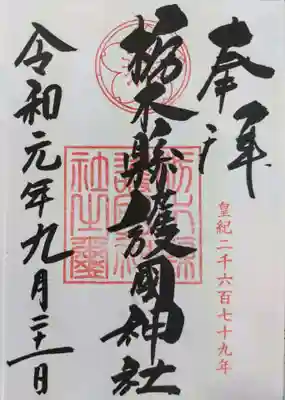 奉拝
皇紀二千六百七十九年
栃木縣護國神社
令和元年九月二十一日